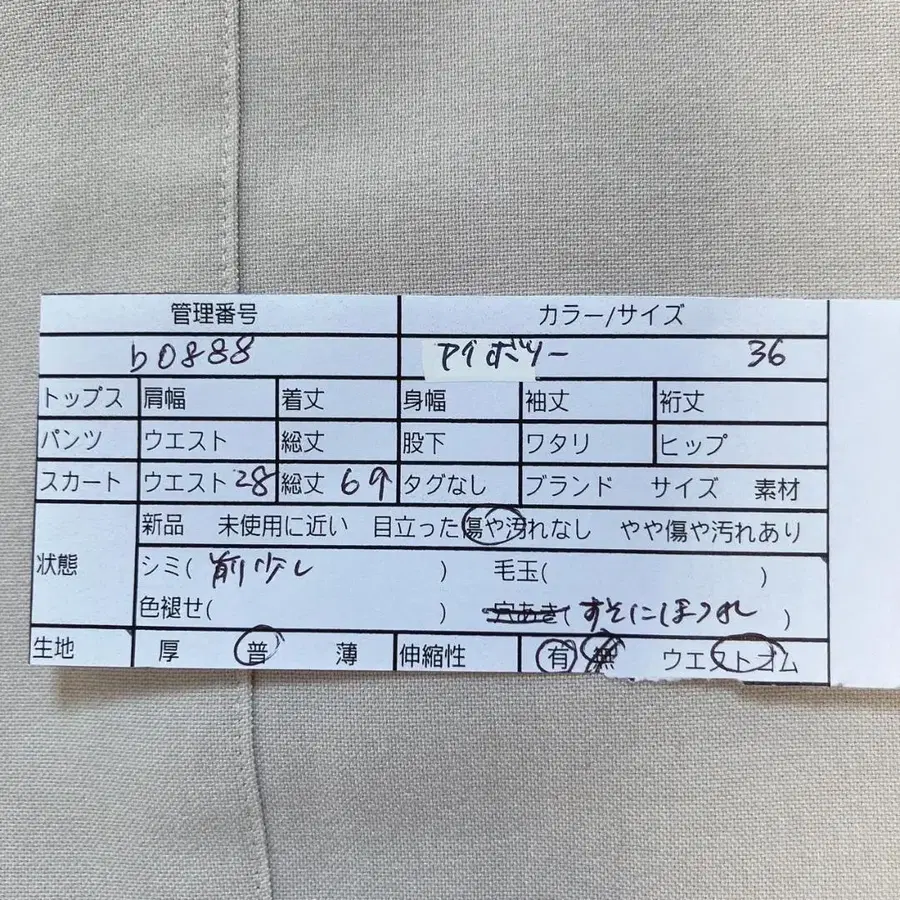 管理番号 カラー/サイズ
b0888 アイボリー 36
トップス 肩幅 着丈 身幅 袖丈 裄丈
パンツ ウエスト 総丈 股下 ワタリ ヒップ
スカート ウエスト28 総丈 69 タグなし ブランド サイズ 素材
新品 未使用に近い 目立った傷や汚れなし やや傷や汚れあり
状態 シミ( 前少し ) 毛玉( )
色褪せ( ) 穴あき( すそにほつれ )
生地 厚 普 薄 伸縮性 有 無 ウエストゴム